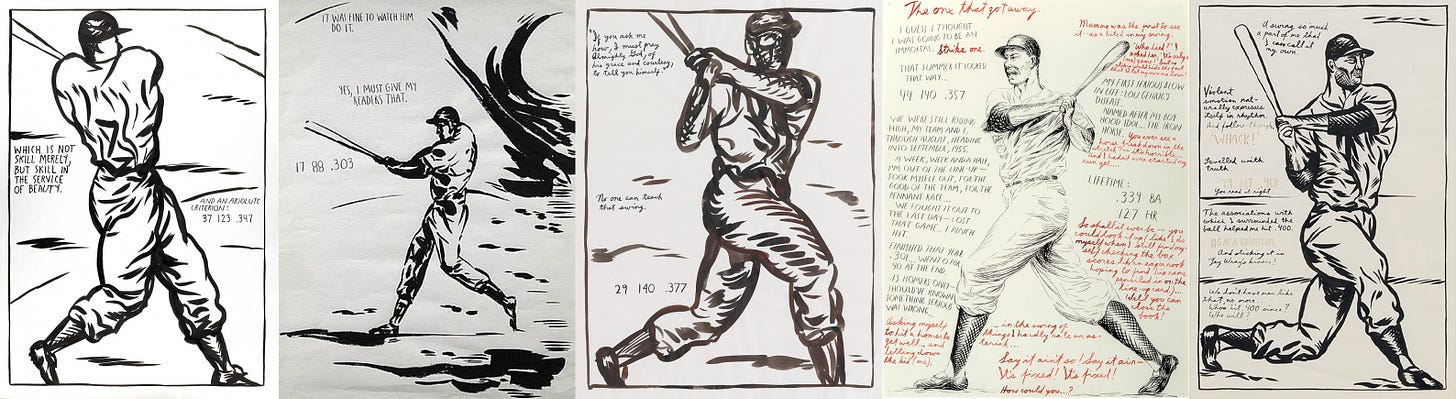 WHICH IS NOT
SKILL MERELY,
BUT SKILL IN
THE SERVICE
OF BEAUTY.
AND AN ABSOLUTE
CRITERION:
37 123 .347
IT WAS FINE TO WATCH HIM
DO IT.
YES, I MUST GIVE MY
READERS THAT.
17 88 .303
"If you ask me
how, I must pray
Almighty God, of
his grace and courtesy,
to tell you himself."
No one can teach
that swing.
29 140 .377
The one that got away.
I GUESS I THOUGHT
I WAS GOING TO BE AN
IMMORTAL. Strike one.
THAT SUMMER IT LOOKED
THAT WAY...
44 140 .357
WE WERE STILL RIDING
HIGH, MY TEAM AND I,
THROUGH AUGUST, HEADING
INTO SEPTEMBER, 1955.
A WEEK, WEEK AND A HALF,
I'M OUT OF THE LINE-UP—
TOOK MYSELF OUT, FOR THE
GOOD OF THE TEAM, FOR THE
PENNANT RACE...
WE FOUGHT IT OUT TO
THE LAST DAY—LOST
THAT GAME... I
HIT
FINISHED THAT YEAR
.301... WENT 0 FOR
40 AT THE END
13 HOMERS ONLY—
SHOULD'VE KNOWN
SOMETHING SERIOUS
WAS WRONG...
Asking myself
to hit a homer to
get well... and
letting down
the kid (me).
Mamma was the first to see
it—as a hitch in my swing.
"Who died?" I
asked
MY FIRST SERIOUS BLOW
IN LIFE: LOU GEHRIG'S
DISEASE.
NAMED AFTER MY BOY-
HOOD IDOL... THE IRON
HORSE. You ever see a
horse break down in the
stretch? — it's horrible...
and I hadn't even started my
run yet...
LIFETIME:
.339 BA
127 HR
So shall it ever be—you
could look it up (while I do
myself when I still find my-
self checking the box
scores like an eager rook
hoping to find his name
penciled in on the
line-up card)...
Well you can
close the
book!
... in the swing of
things I hardly rate an as-
terisk...
Say it ain't so! Say it ain—
It's fixed! It's fixed!
How could you...?
A swing so much
a part of me that
I can call it
my own.
Violent
emotion nat-
urally expresses
itself in rhythm.
And follow through
"WHACK!"
Levelled with
truth
You read it right.
The associations with
which I surrounded the
ball helped me hit .400.
BIG AS A GRAPEFRUIT.
And sticking it in
Jay Wray's kisser!
We don't have men like
that no more...
Who hit .400 since?
Who will?